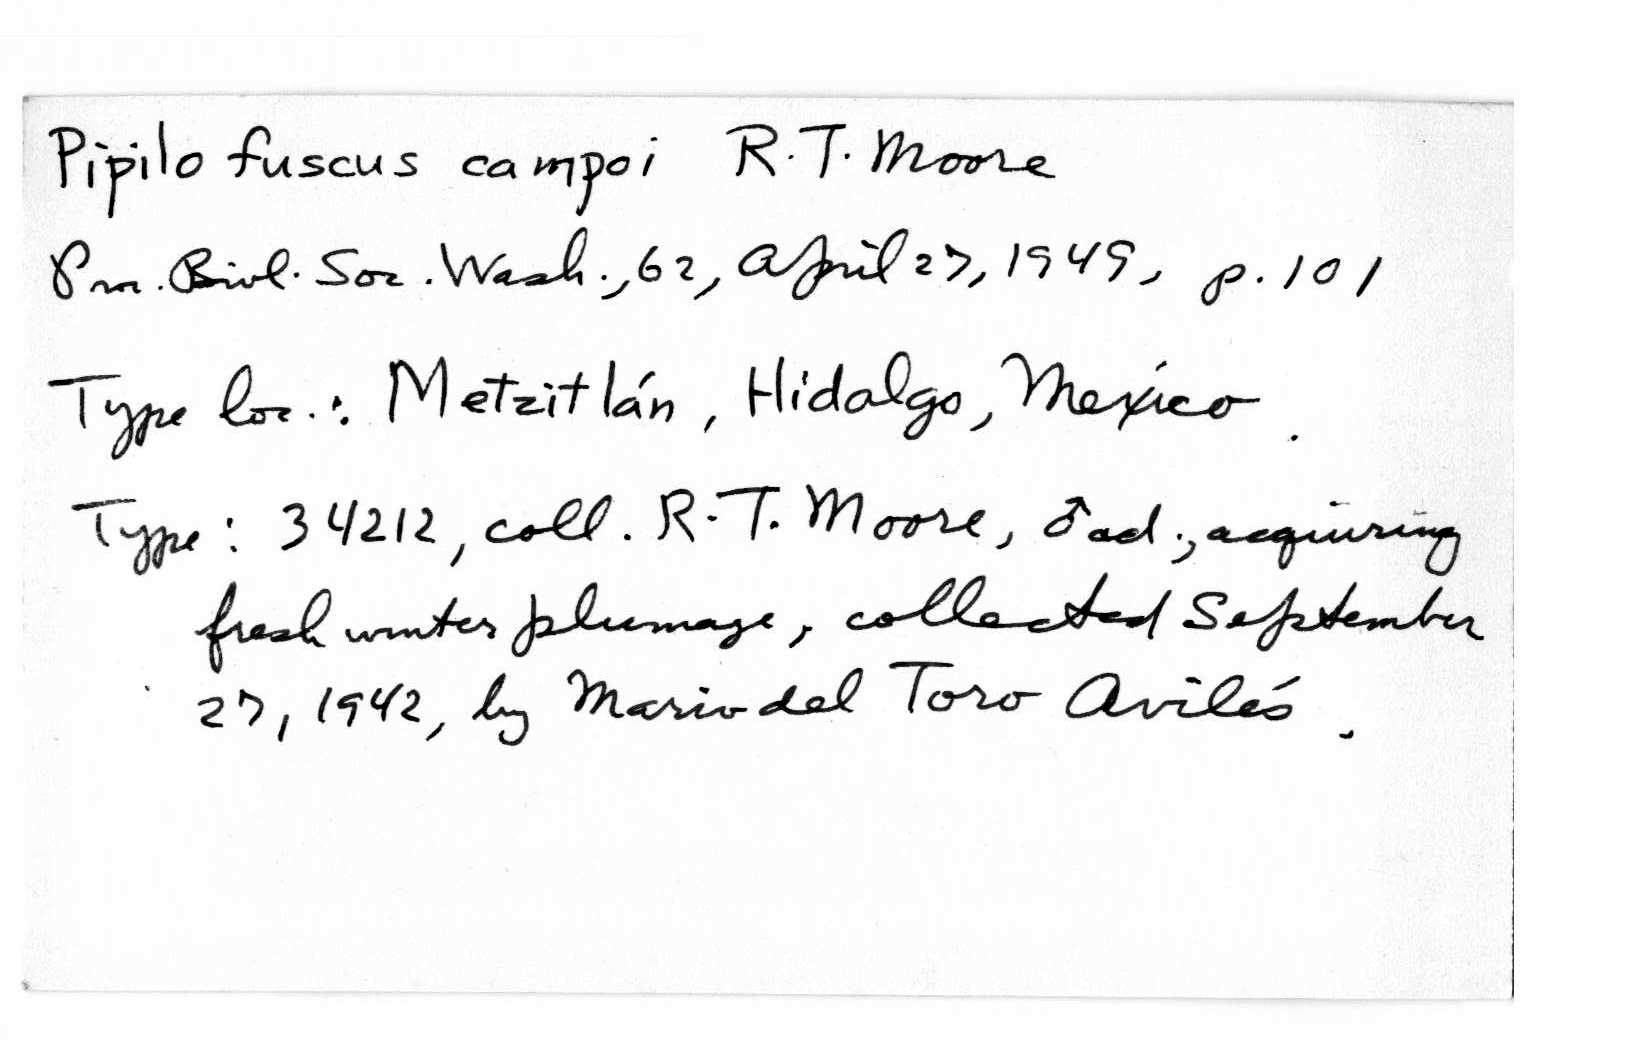 Pipilo fuscus campoi R.T. Moore
Proc. Biol. Soc. Wash., 62, April 27, 1949, p. 101
Type loc.: Metzitlán, Hidalgo, Mexico.
Type: 34212, coll. R.T. Moore, ♂ ad., acquiring
fresh winter plumage, collected September
27, 1942, by Mario del Toro Avilés.